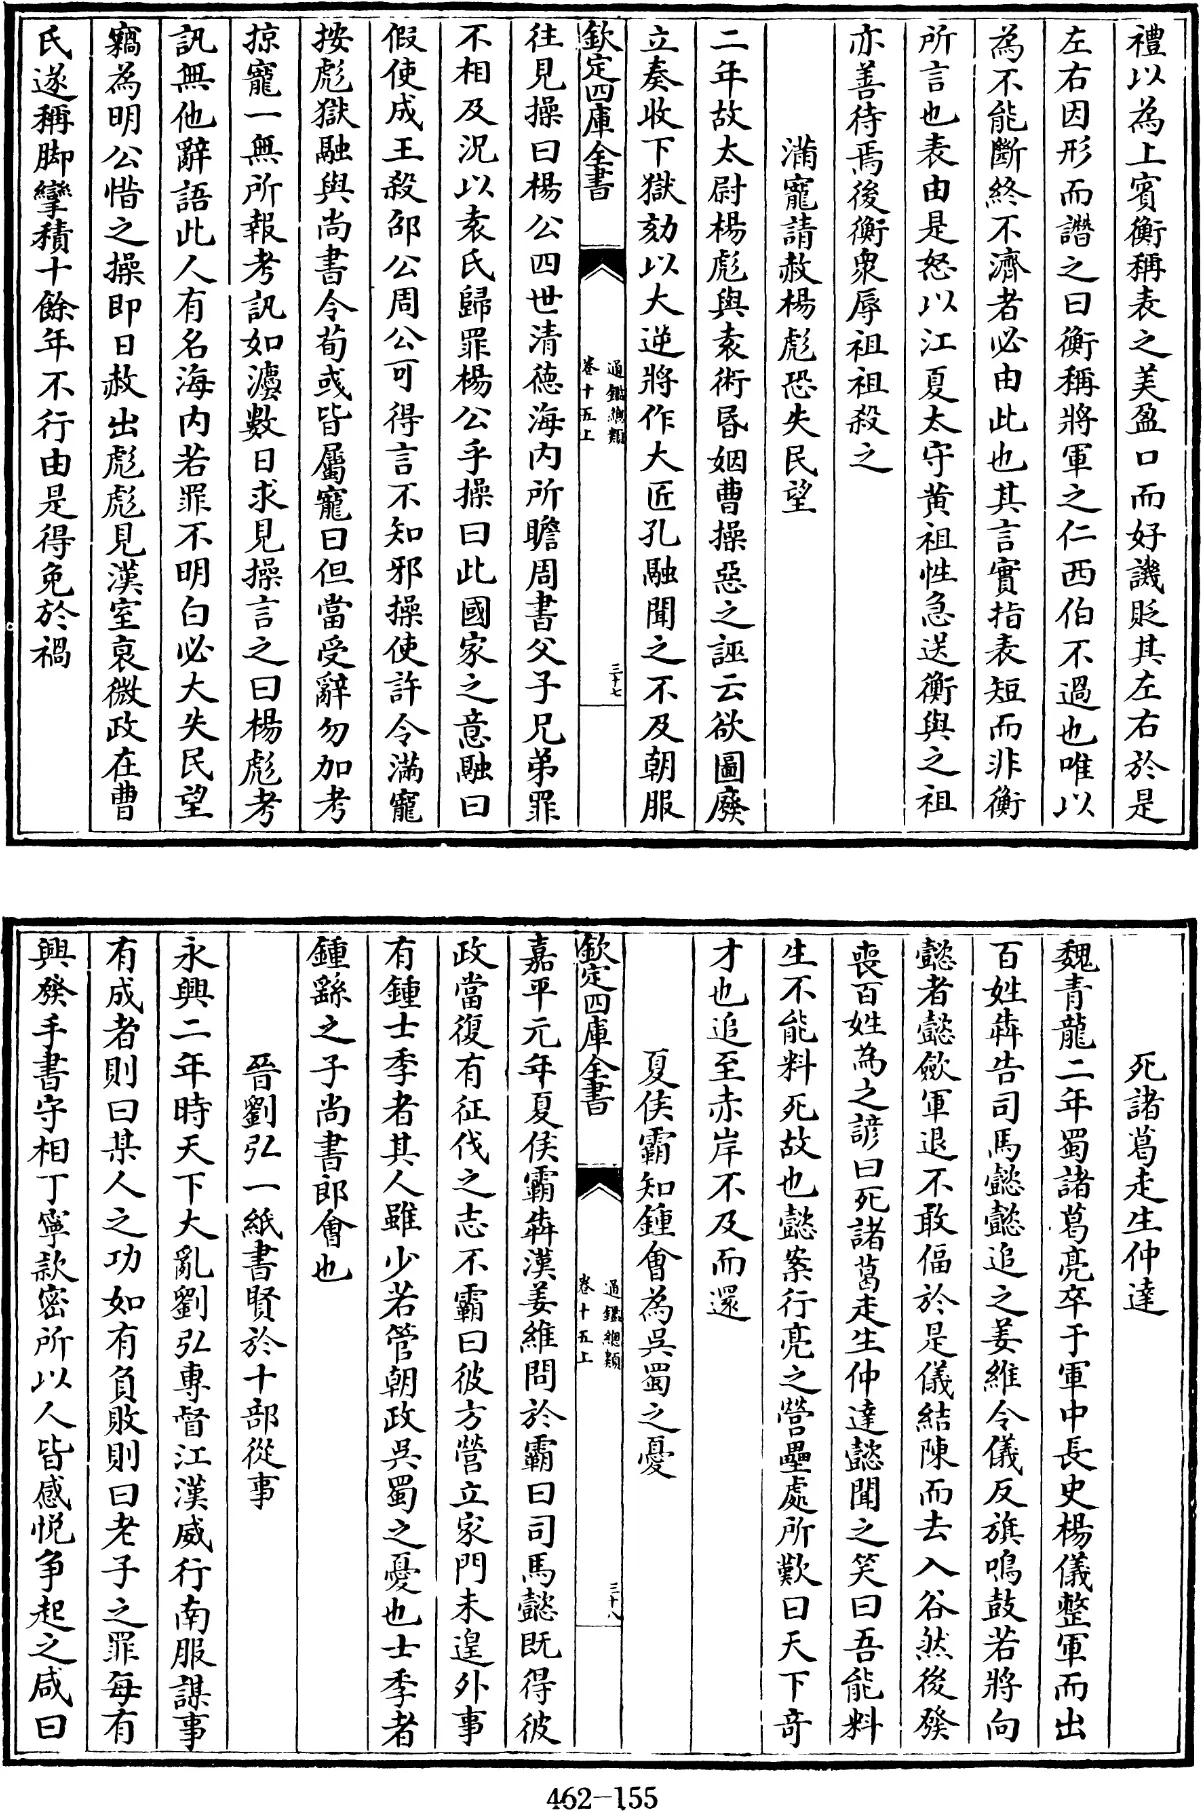 禮以為上賓衡稱表之美盈口而好譏貶其左右於是
左右因形而譖之曰衡稱將軍之仁西伯不過也唯以
為不能斷終不濟者必由此也其言實指表短而非衡
所言也表由是怒以江夏太守黄祖性急送衡與之祖
亦善待焉後衡衆辱祖祖殺之
滿寵請赦楊彪恐失民望
二年故太尉楊彪與袁術昬姻曹操惡之誣云欲圖廢
立奏收下獄劾以大逆將作大匠孔融聞之不及朝服
欽定四庫全書
通鑑總類
卷十五上
三十七
往見操曰楊公四世清德海内所瞻周書父子兄弟罪
不相及況以袁氏歸罪楊公乎操曰此國家之意融曰
假使成王殺邵公周公可得言不知邪操使許令滿寵
按彪獄融與尚書令荀彧皆屬寵曰但當受辭勿加考
掠寵一無所報考訊如灋數日求見操言之曰楊彪考
訊無他辭語此人有名海内若罪不明白必大失民望
竊為明公惜之操即日赦出彪彪見漢室衰微政在曹
氏遂稱脚攣積十餘年不行由是得免於禍
死諸葛走生仲達
魏青龍二年蜀諸葛亮卒于軍中長史楊儀整軍而出
百姓犇告司馬懿懿追之姜維令儀反旗鳴鼓若將向
懿者懿斂軍退不敢偪於是儀結陳而去入谷然後發
喪百姓為之諺曰死諸葛走生仲達懿聞之笑曰吾能料
生不能料死故也懿案行亮之營壘處所歎曰天下奇
才也追至赤岸不及而還
夏侯霸知鍾會為吳蜀之憂
欽定四庫全書
通鑑總類
卷十五上
三十八
嘉平元年夏侯霸犇漢姜維問於霸曰司馬懿既得彼
政當復有征伐之志不霸曰彼方營立家門未遑外事
有鍾士季者其人雖少若管朝政吳蜀之憂也士季者
鍾繇之子尚書郎會也
晉劉弘一紙書賢於十部從事
永興二年時天下大亂劉弘專督江漢威行南服謀事
有成者則曰某人之功如有負敗則曰老子之罪每有
興發手書守相丁寧款密所以人皆感悅争起之咸曰
462-155